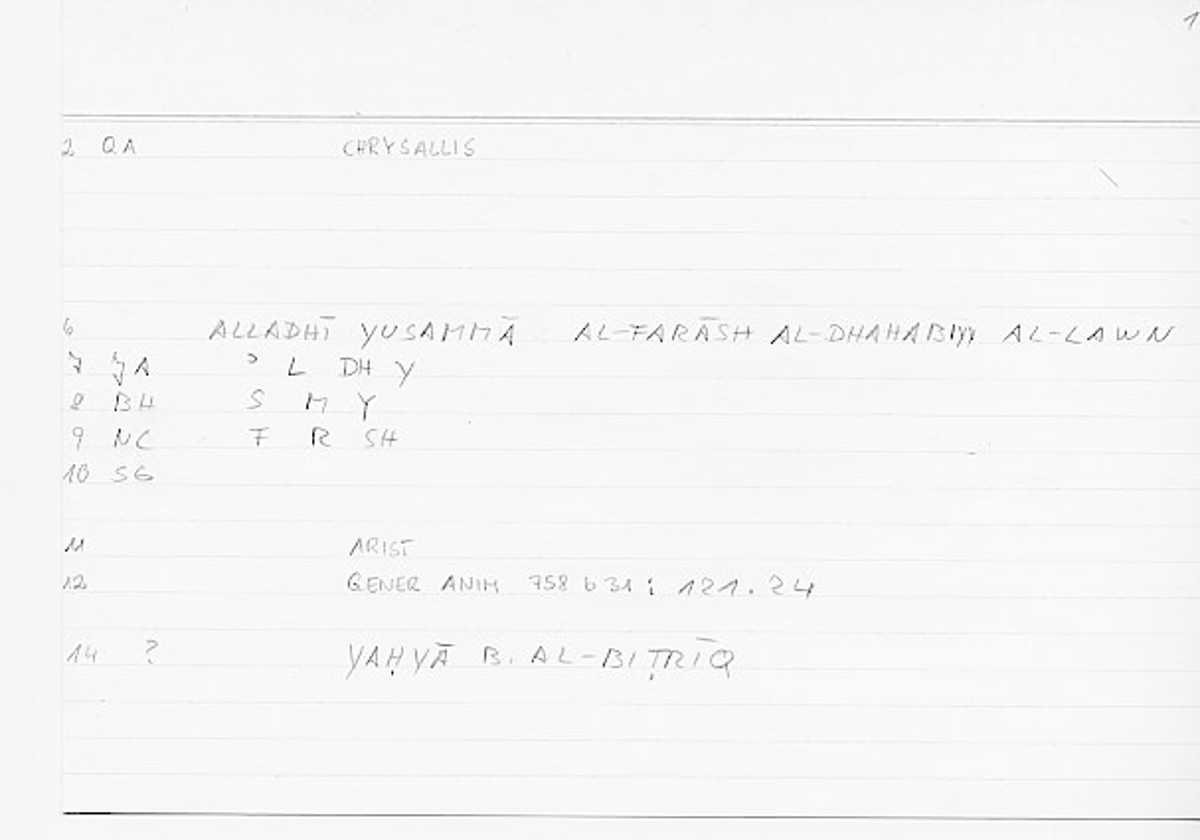 1
2 QA CHRYSALLIS
6 ALLADHĪ YUSAMMĀ AL-FARĀSH AL-DHAHABIYY AL-LAWN
7 JA ʾ L DH Y
8 BH S M Y
9 NC F R SH
10 SG
11 ARIST
12 GENER ANIM 758 b 31 : 121.24
14 ? YAḤYĀ B. AL-BIṬRĪQ